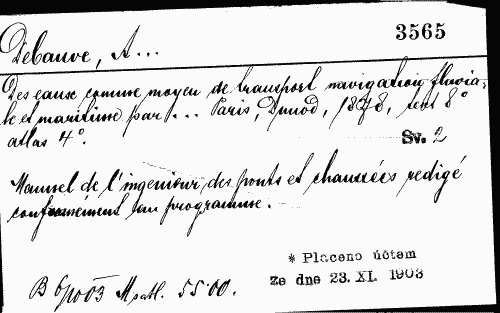 3565
Débauve, A...
Des eaux comme moyen de transport navigation fluvia-
le et maritime par ... Paris, Dunod, 1878, text 8°
atlas 4°.
Sv. 2
Manuel de l'ingenieur des ponts et chaussées redigé
conformément au programme.
* Placeno účtem
ze dne 23. XI. 1903
B 03 55·00.